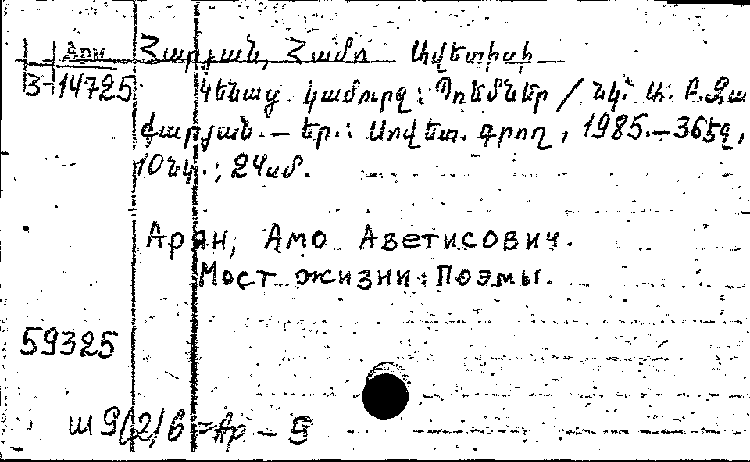 Հարյան, Համո Ավետիսի
3-14725 Կենաց կամուրջ: Պոեմներ / նկ. Ա. Բ. Զա
քարյան. – Եր.: Սովետ. գրող, 1985.–365էջ,
10նկ.; 24սմ.
Арян, Амо Аветисович.
Мост жизни: Поэмы.
59325